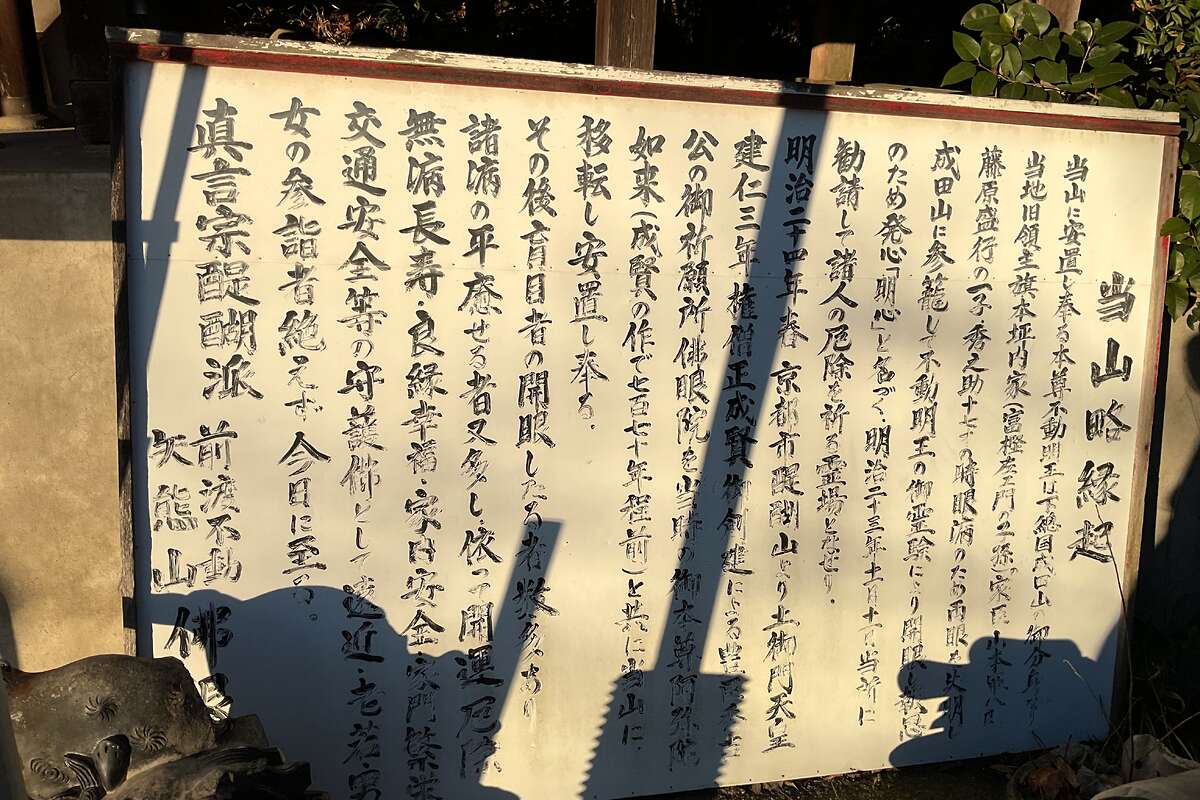 当山略縁起
当山に安置し奉る本尊不動明王は下総国成田山御分身なり
当地旧領主旗本坪内家(富樫左エ門の子孫)家臣山本甲八
藤原盛行の一子秀之助十七才の時眼病のため両眼を失明し
成田山に参籠して不動明王の御霊験により開眼し
のため発心「明心」と名づく、明治二十三年十一月十一日当所に
勧請して諸人の厄除を祈る霊場となせり。
明治二十四年春 京都市醍醐山より土御門天皇
建仁三年 権僧正成賢御創建による豊臣秀吉
公の御祈願所佛眼院を当時の御本尊阿弥陀
如来(成賢の作で七百七十年程前)と共に当山に
移転し安置し奉る。
その後盲目者の開眼したる者数多あり
諸病の平癒せる者又多し、依って開運厄除
無病長寿・良縁幸福・家内安全・家門繁栄
交通安全等の守護佛として遠近老若男
女の参詣者絶えず今日に至る。
真言宗醍醐派 前渡不動
矢熊山 佛